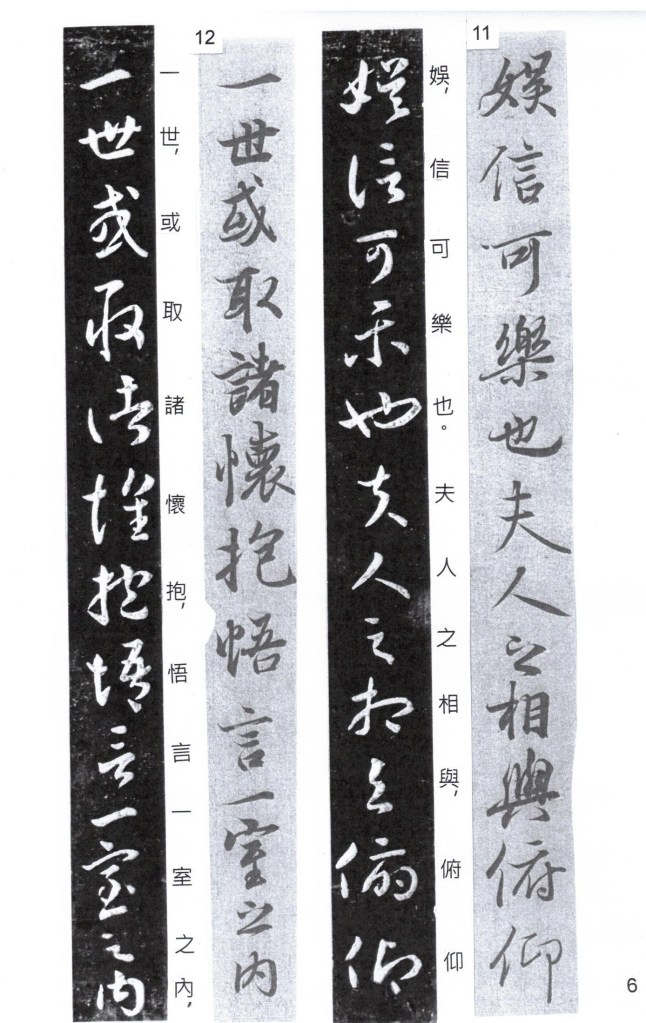 11
娛信可樂也夫人之相與俯仰
娛,信可樂也。夫人之相與,俯仰
娛信可樂也夫人之相與俯仰
12
一世或取諸懷抱悟言一室之內
一世,或取諸懷抱,悟言一室之內,
一世或取諸懷抱悟言一室之內
6